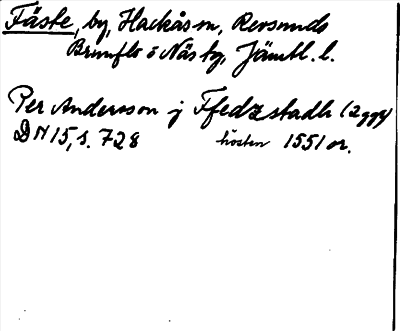 Fäste, by, Hackås sn, Revsunds
Brunflo o Näs tg, Jämtl. l.
Per Andersson j Ffedzstadh (2 ggr)
DN 15, s. 728 hösten 1551 or.